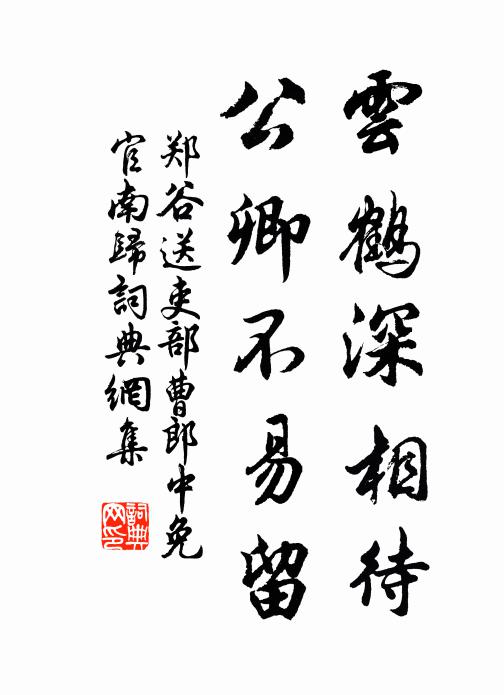 雲鶴深相待
公卿不易留
郑谷送吏部曹郎中免
官南歸詞典網集
詞典
网印